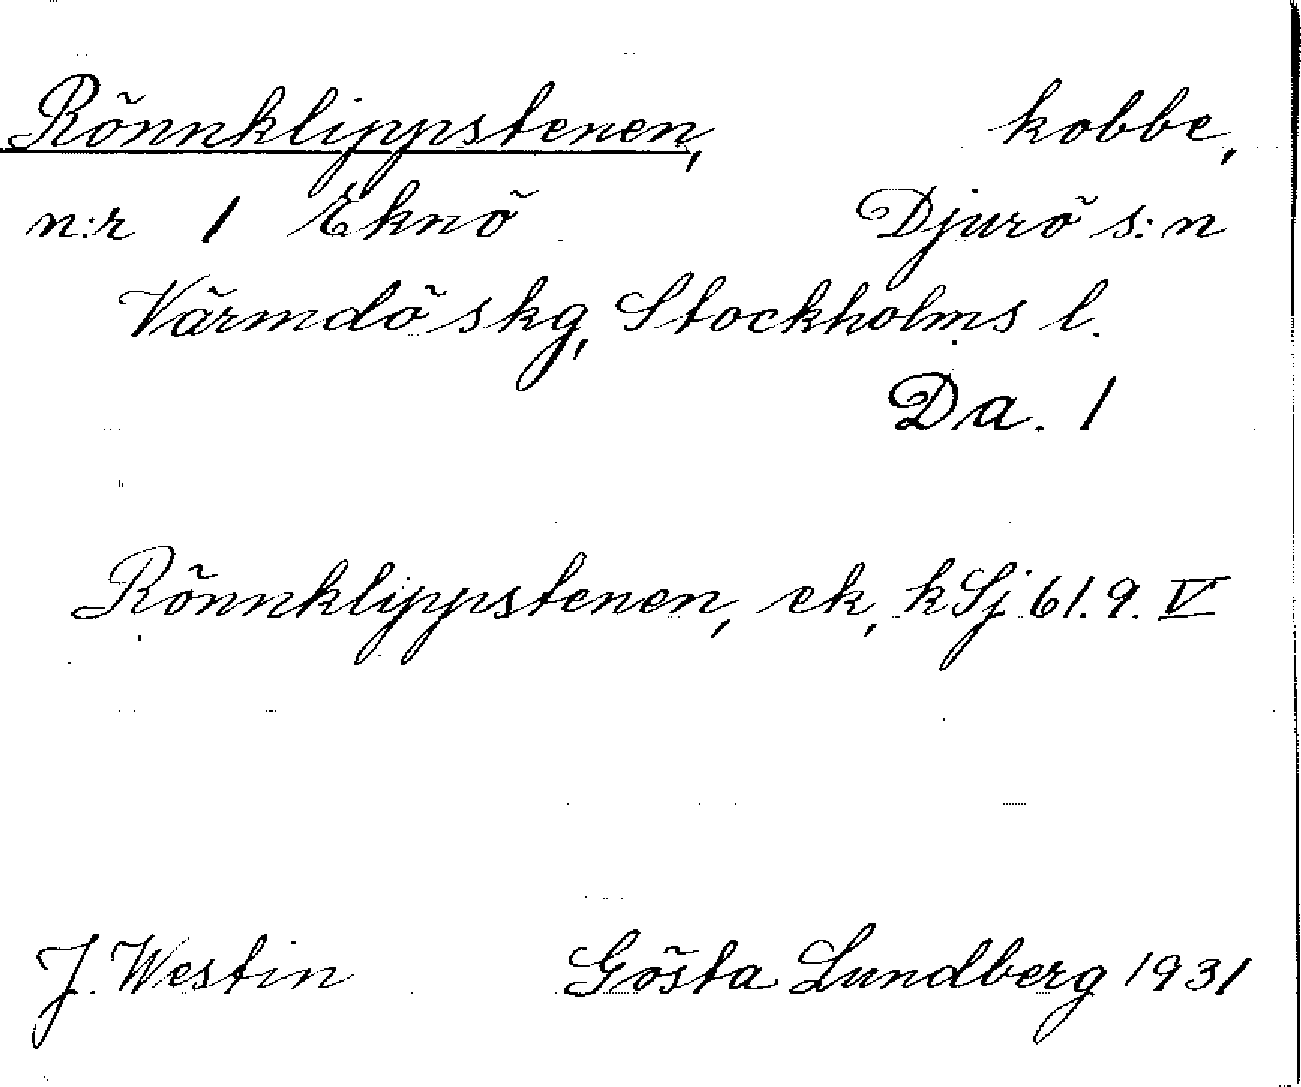 Rönnklippstenen, kobbe,
n:r 1 Eknö Djurö s:n
Värmdö skg, Stockholms l.
Da. 1
Rönnklippstenen, ek, kSj 61.9. V
J. Westin Gösta Lundberg 1931